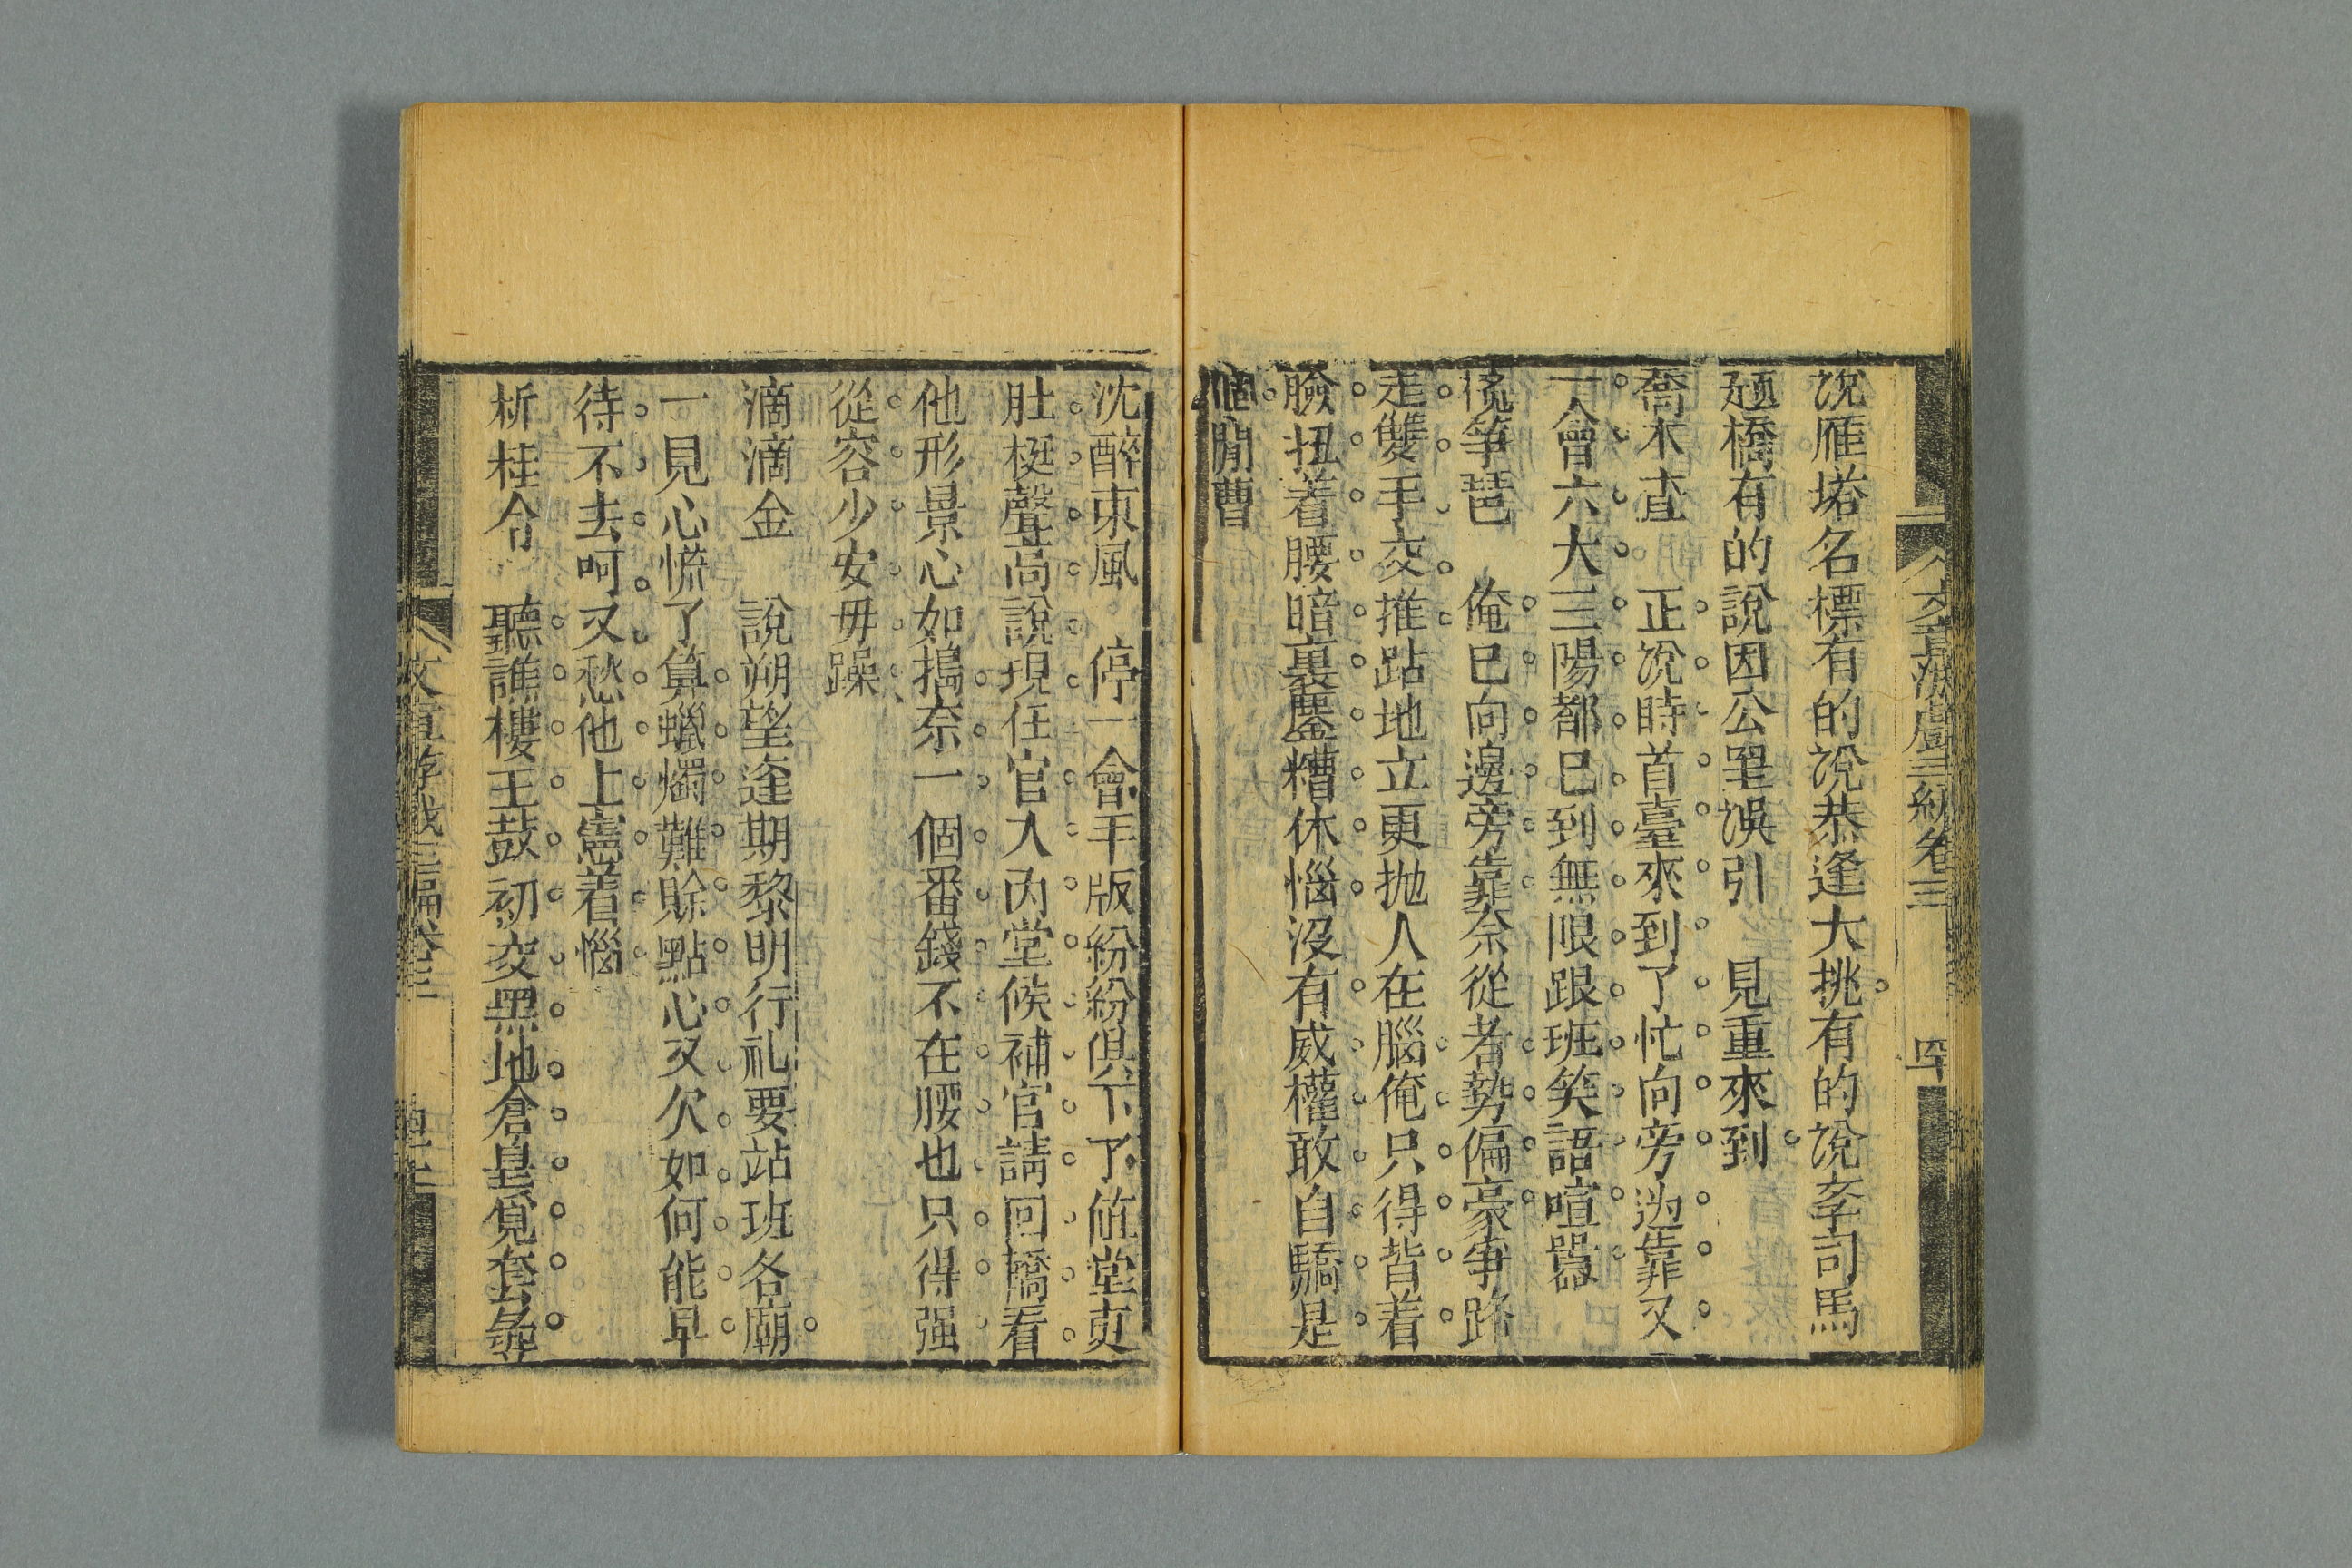 文章游戲三編卷三
四
說雁塔名標有的說恭逢大挑有的說李司馬
題橋有的說因公罣悞引　見重來到
喬木查　正說時首臺來到了忙向旁邊靠又
一會六大三陽都已到無限跟班笑語喧嚣
攪箏琶　俺已向邊旁靠奈從者勢偏豪爭路
走雙手交推跕地立更拋人在腦俺只得皆着
臉扭着腰暗裏鏖糟休惱沒有威權敢自驕是
個閒曹
沈醉東風　停一會手版紛紛俱下了值堂吏
肚梃聲高說現任官入內堂候補官請回轎看
他形景心如搗奈一個番錢不在腰也只得强
從容少安毋躁
滴滴金　說朔望逢期黎明行礼要站班各廟
一見心慌了算蠟燭難賒點心又欠如何能早
待不去呵又愁他上憲着惱
折桂令　聽譙樓王鼓初交黑地倉皇覓套尋
文章游戲三編卷三